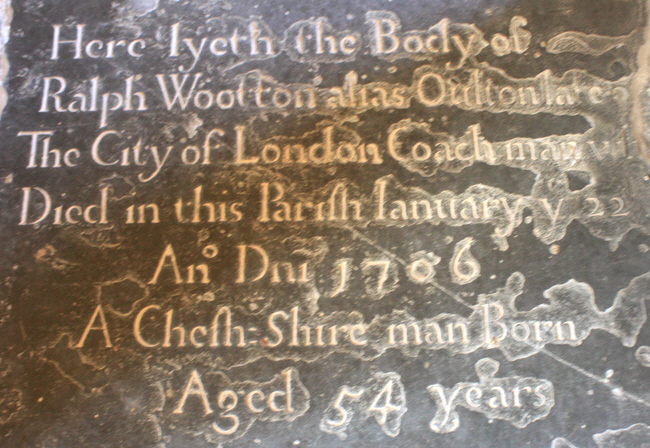 Here lyeth the Body of
Ralph Wootton alias Oulton late of
The City of London Coach man
Died in this Pariſh Ianuary y 22
Anº Dni 1706
A Cheſh-Shire man Born
Aged 54 years